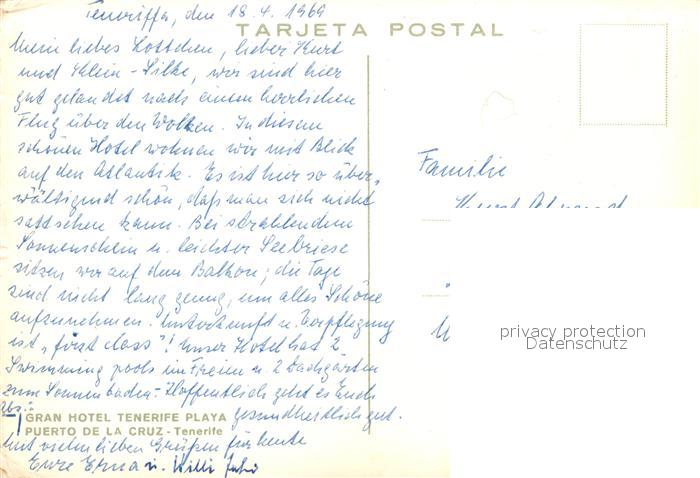 Teneriffa, den 18.4.1969
TARJETA POSTAL
Mein liebes Lottchen, lieber Kurt
und Klein-Silke, wir sind hier
gut gelandet nach einem herrlichen
Flug über den Wolken. In diesem
schönen Hotel wohnen wir mit Blick
auf den Atlantik. Es ist hier so über-
wältigend schön, daß man sich nicht
sattsehen kann. Bei strahlendem
Sonnenschein u. leichter Seebriese
sitzen wir auf dem Balkon; die Tage
sind nicht lang genug, um alles Schöne
aufzunehmen. Unterkunft u. Verpflegung
ist "first class"! Unser Hotel hat 2
Swimming pools im Freien u. 2 Dachgärten
zum Sonnenbaden. Hoffentlich geht es Euch
gesundheitlich gut.
GRAN HOTEL TENERIFE PLAYA
PUERTO DE LA CRUZ - Tenerife
Mit vielen lieben Grüßen für heute
Eure Erna u. Willi
Familie
Kurt
privacy protection
Datenschutz